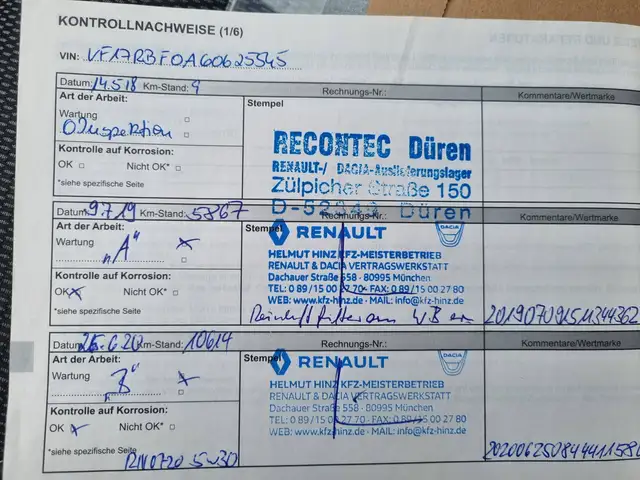 KONTROLLNACHWEISE (1/6)
VIN: VF17RBF0A60625545
Datum: 14.5.18 Km-Stand: 9 Rechnungs-Nr.: Kommentare/Wertmarke
Art der Arbeit: Stempel
Wartung
Kontrolle auf Korrosion:
OK Nicht OK*
*siehe spezifische Seite
RECONTEC Düren
RENAULT-/ DACIA-Auslieferungslager
Zülpicher Straße 150
Düren
Datum: 9.7.19 Km-Stand: 5867 Rechnungs-Nr.: Kommentare/Wertmarke
Art der Arbeit: Stempel
Wartung
"A"
Kontrolle auf Korrosion:
OK Nicht OK*
*siehe spezifische Seite
RENAULT DACIA
HELMUT HINZ KFZ-MEISTERBETRIEB
RENAULT & DACIA VERTRAGSWERKSTATT
Dachauer Straße 558 · 80995 München
TEL: 0 89/15 00 27 70 · FAX: 0 89/15 00 27 80
WEB: www.kfz-hinz.de · MAIL: info@kfz-hinz.de
Datum: 25.6.20 Km-Stand: 10614 Rechnungs-Nr.: Kommentare/Wertmarke
Art der Arbeit: Stempel
Wartung
"B"
Kontrolle auf Korrosion:
OK Nicht OK*
*siehe spezifische Seite
5W30
RENAULT DACIA
HELMUT HINZ KFZ-MEISTERBETRIEB
RENAULT & DACIA VERTRAGSWERKSTATT
Dachauer Straße 558 · 80995 München
TEL: 0 89/15 00 27 70 · FAX: 0 89/15 00 27 80
WEB: www.kfz-hinz.de · MAIL: info@kfz-hinz.de